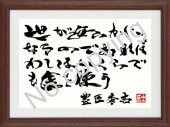 世が
なるのであれば
わしはいくらで
も金を使う
豊臣秀吉